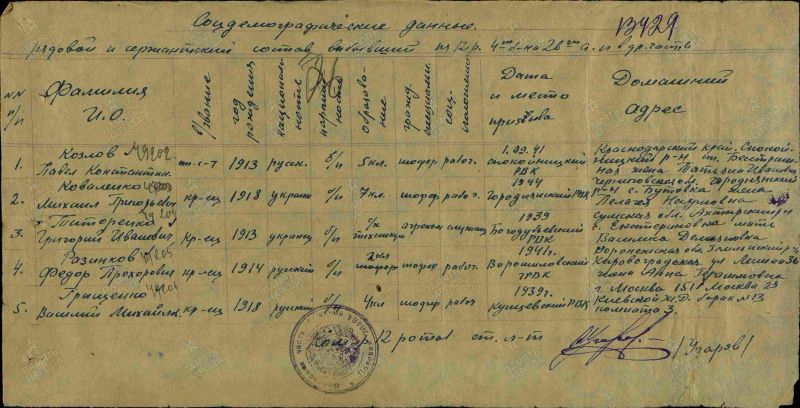 Соцдемографические данные. 13429
рядовой и сержантский состав выбывший из 12 р. 4го б-на 26 а. и в др. часть
N.N п/п Фамилия И.О. Звание год рождения националь-ность партий-ность образова-ние гражд. специальн. соц. положение Дата и место призыва Домашний адрес
1. Козлов 49202 Павел Константин. ст. с-т 1913 русск. б/п 5 кл. шофер рабоч. 1.09.41 Спокойницкий РВК Краснодарский край. Спокой-ницкий р-н ст. Бесстраш-ная жена Татьяна Ивановн.
2. Коваленко Михаил Григорьевич кр-ец 1918 украин б/п 7 кл. шофер рабоч. 1944 Городнянский РВК Черниговской, Городнянский р-н с. Бутовка жена Пелагея Наумовна
3. Титоренко 49204 Григорий Иванович кр-ец 1913 украинец б/п с/х техникум агроном служащ 1939 Богодуховский РВК Сумская обл. Ахтырский р-н с. Екатериновка мать Василиса Демьяновна
4. Разинков 49205 Федор Прохорович кр-ец 1914 русский б/п 2 кл шофер рабоч. 1941 г. Ворошиловский ГРВК Воронежская обл. ул Ленина 36 жена Анна Герасимовна
5. Грищенко 49206 Василий Михайл. кр-ец 1918 русский б/п 4 кл шофер рабоч 1939 г. Кунцевский РВК г. Москва 151 Москва 23 Киевской Ж.Д. барак N 13 комната 3.
Ком-р 12 роты ст. л-т /Угаров/